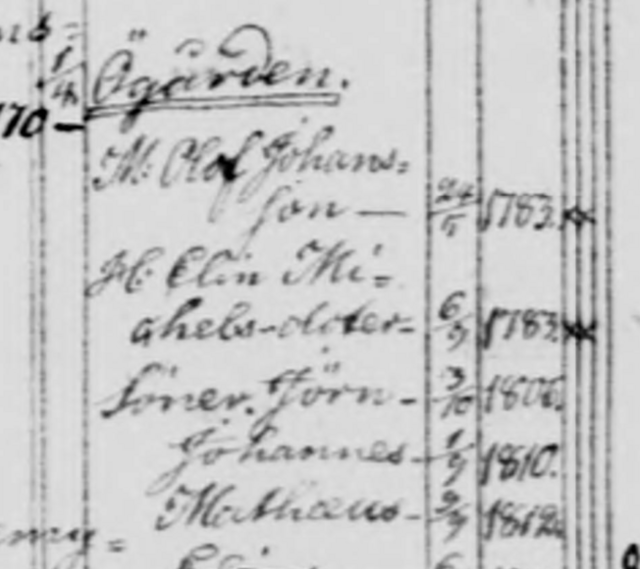 1/4 Ögården.
170 -
M: Olof Johans=
son — 24/5 1783.
H: Elin Mi=
ahels-doter- 6/9 1783.
Söner. Jörn - 3/10 1806.
Johannes - 1/9 1810.
Mathæus - 9/9 1812.